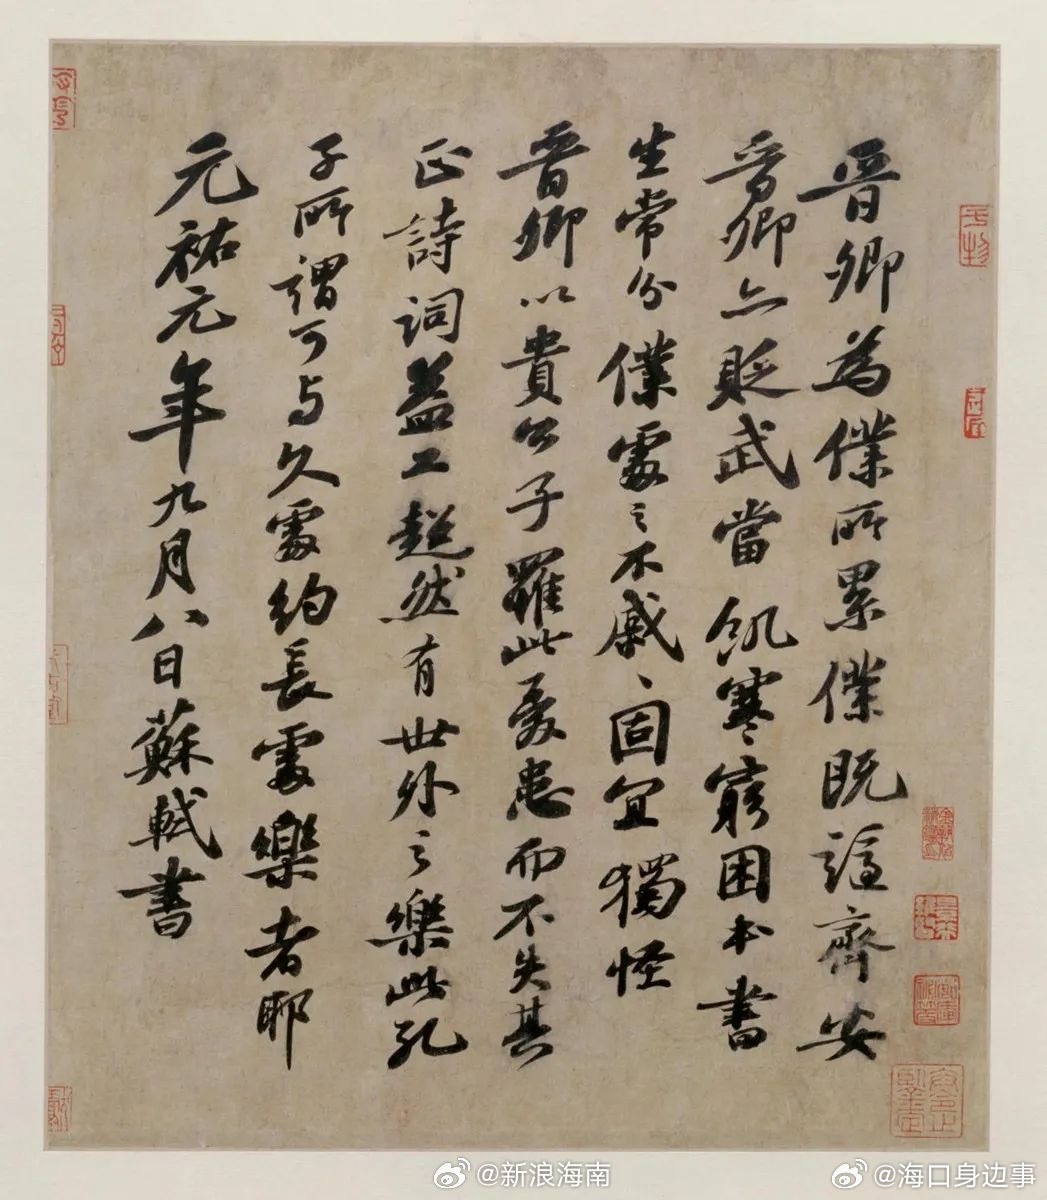 晉卿為僕所累僕既謫齊安
晉卿亦貶武當飢寒窮困本書
生常分僕處之不戚〻固宜獨怪
晉卿以貴公子罹此憂患而不失其
正詩詞益工超然有世外之樂此孔
子所謂可与久處約長處樂者耶
元祐元年九月八日蘇軾書
@新浪海南
@海口身边事